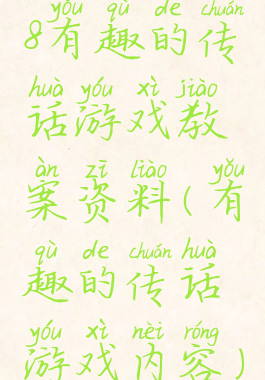 yǒu qù de chuán
8有趣的传
huà yóu xì jiào
话游戏教
àn zī liào yǒu
案资料(有
qù de chuán huà
趣的传话
yóu xì nèi róng
游戏内容)